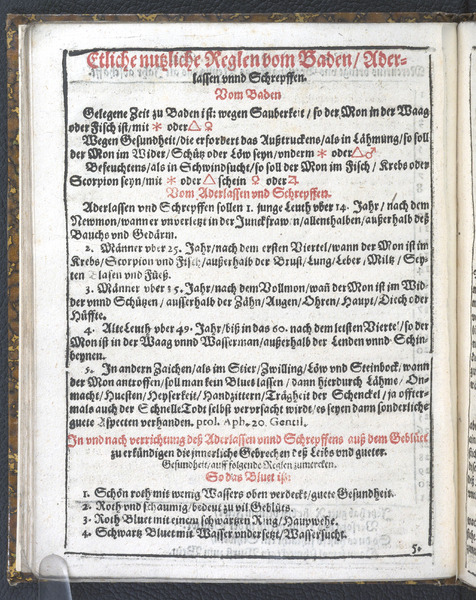 Etliche nutzliche Reglen vom Baden / Ader-
lassen vnnd Schrepffen.
Vom Baden
Gelegene Zeit zu Baden ist: wegen Sauberkeit / so der Mon in der Waag
oder Fisch ist / mit ⚹ oder △ ♀
Wegen Gesundheit / die erfordert das Außtruckens / als in Lähmung / so soll
der Mon im Wider / Schütz oder Löw seyn / vnderm ⚹ oder △ ♂
Befeuchtens / als in Schwindsucht / so soll der Mon im Fisch / Krebs oder
Scorpion seyn / mit ⚹ oder △ schein ♀ oder ♃
Vom Aderlassen vnd Schrepffen.
Aderlassen vnd Schrepffen sollen 1. junge Leuth vber 14. Jahr / nach dem
Newmon / wann er vnverletzt in der Junckfrawen / allenthalben / ausserhalb deß
Bauchs vnd Gedärm.
2. Männer vber 25. Jahr / nach dem ersten Viertel / wann der Mon ist im
Krebs / Scorpion vnd Fisch / ausserhalb der Brust / Lung / Leber / Miltz / Sey-
ten Blasen vnd Füeß.
3. Männer vber 35. Jahr / nach dem Vollmon / wañ der Mon ist im Wid-
der vnnd Schützen / ausserhalb der Zähn / Augen / Ohren / Haupt / Diech oder
Hüffte.
4. Alte Leuth vber 49. Jahr / biß in das 60. nach dem letsten Viertel / so der
Mon ist in der Waag vnnd Wasserman / ausserhalb der Lenden vnnd Schin-
beynen.
5. In andern Zaichen / als im Stier / Zwilling / Löw vnd Steinbock / wann
der Mon antroffen / soll man kein Bluet lassen / dann hierdurch Lähme / On-
macht / Huesten / Heyserkeit / Handzittern / Trägheit der Schenckel / ja offter-
mals auch der Schnelle Todt selbst vervrsacht wirdt / es seyen dann sonderliche
guete Aspecten verhanden. ptol. Aph. 20. Gentil.
In vnd nach verrichtung deß Aderlassen vnnd Schrepffens auß dem Geblüet
zu erkündigen die jnnerliche Gebrechen deß Leibs vnd gueter
Gesundheit / auff folgende Reglen zumercken.
So das Bluet ist:
1. Schön roth mit wenig Wassers oben verdeckt / guete Gesundheit.
2. Roth vnd schaumig / bedeut zu vil Geblüts.
3. Roth Bluet mit einem schwartzen Ring / Hauptwehe.
4. Schwartz Bluet mit Wasser vndersetzt / Wassersucht.